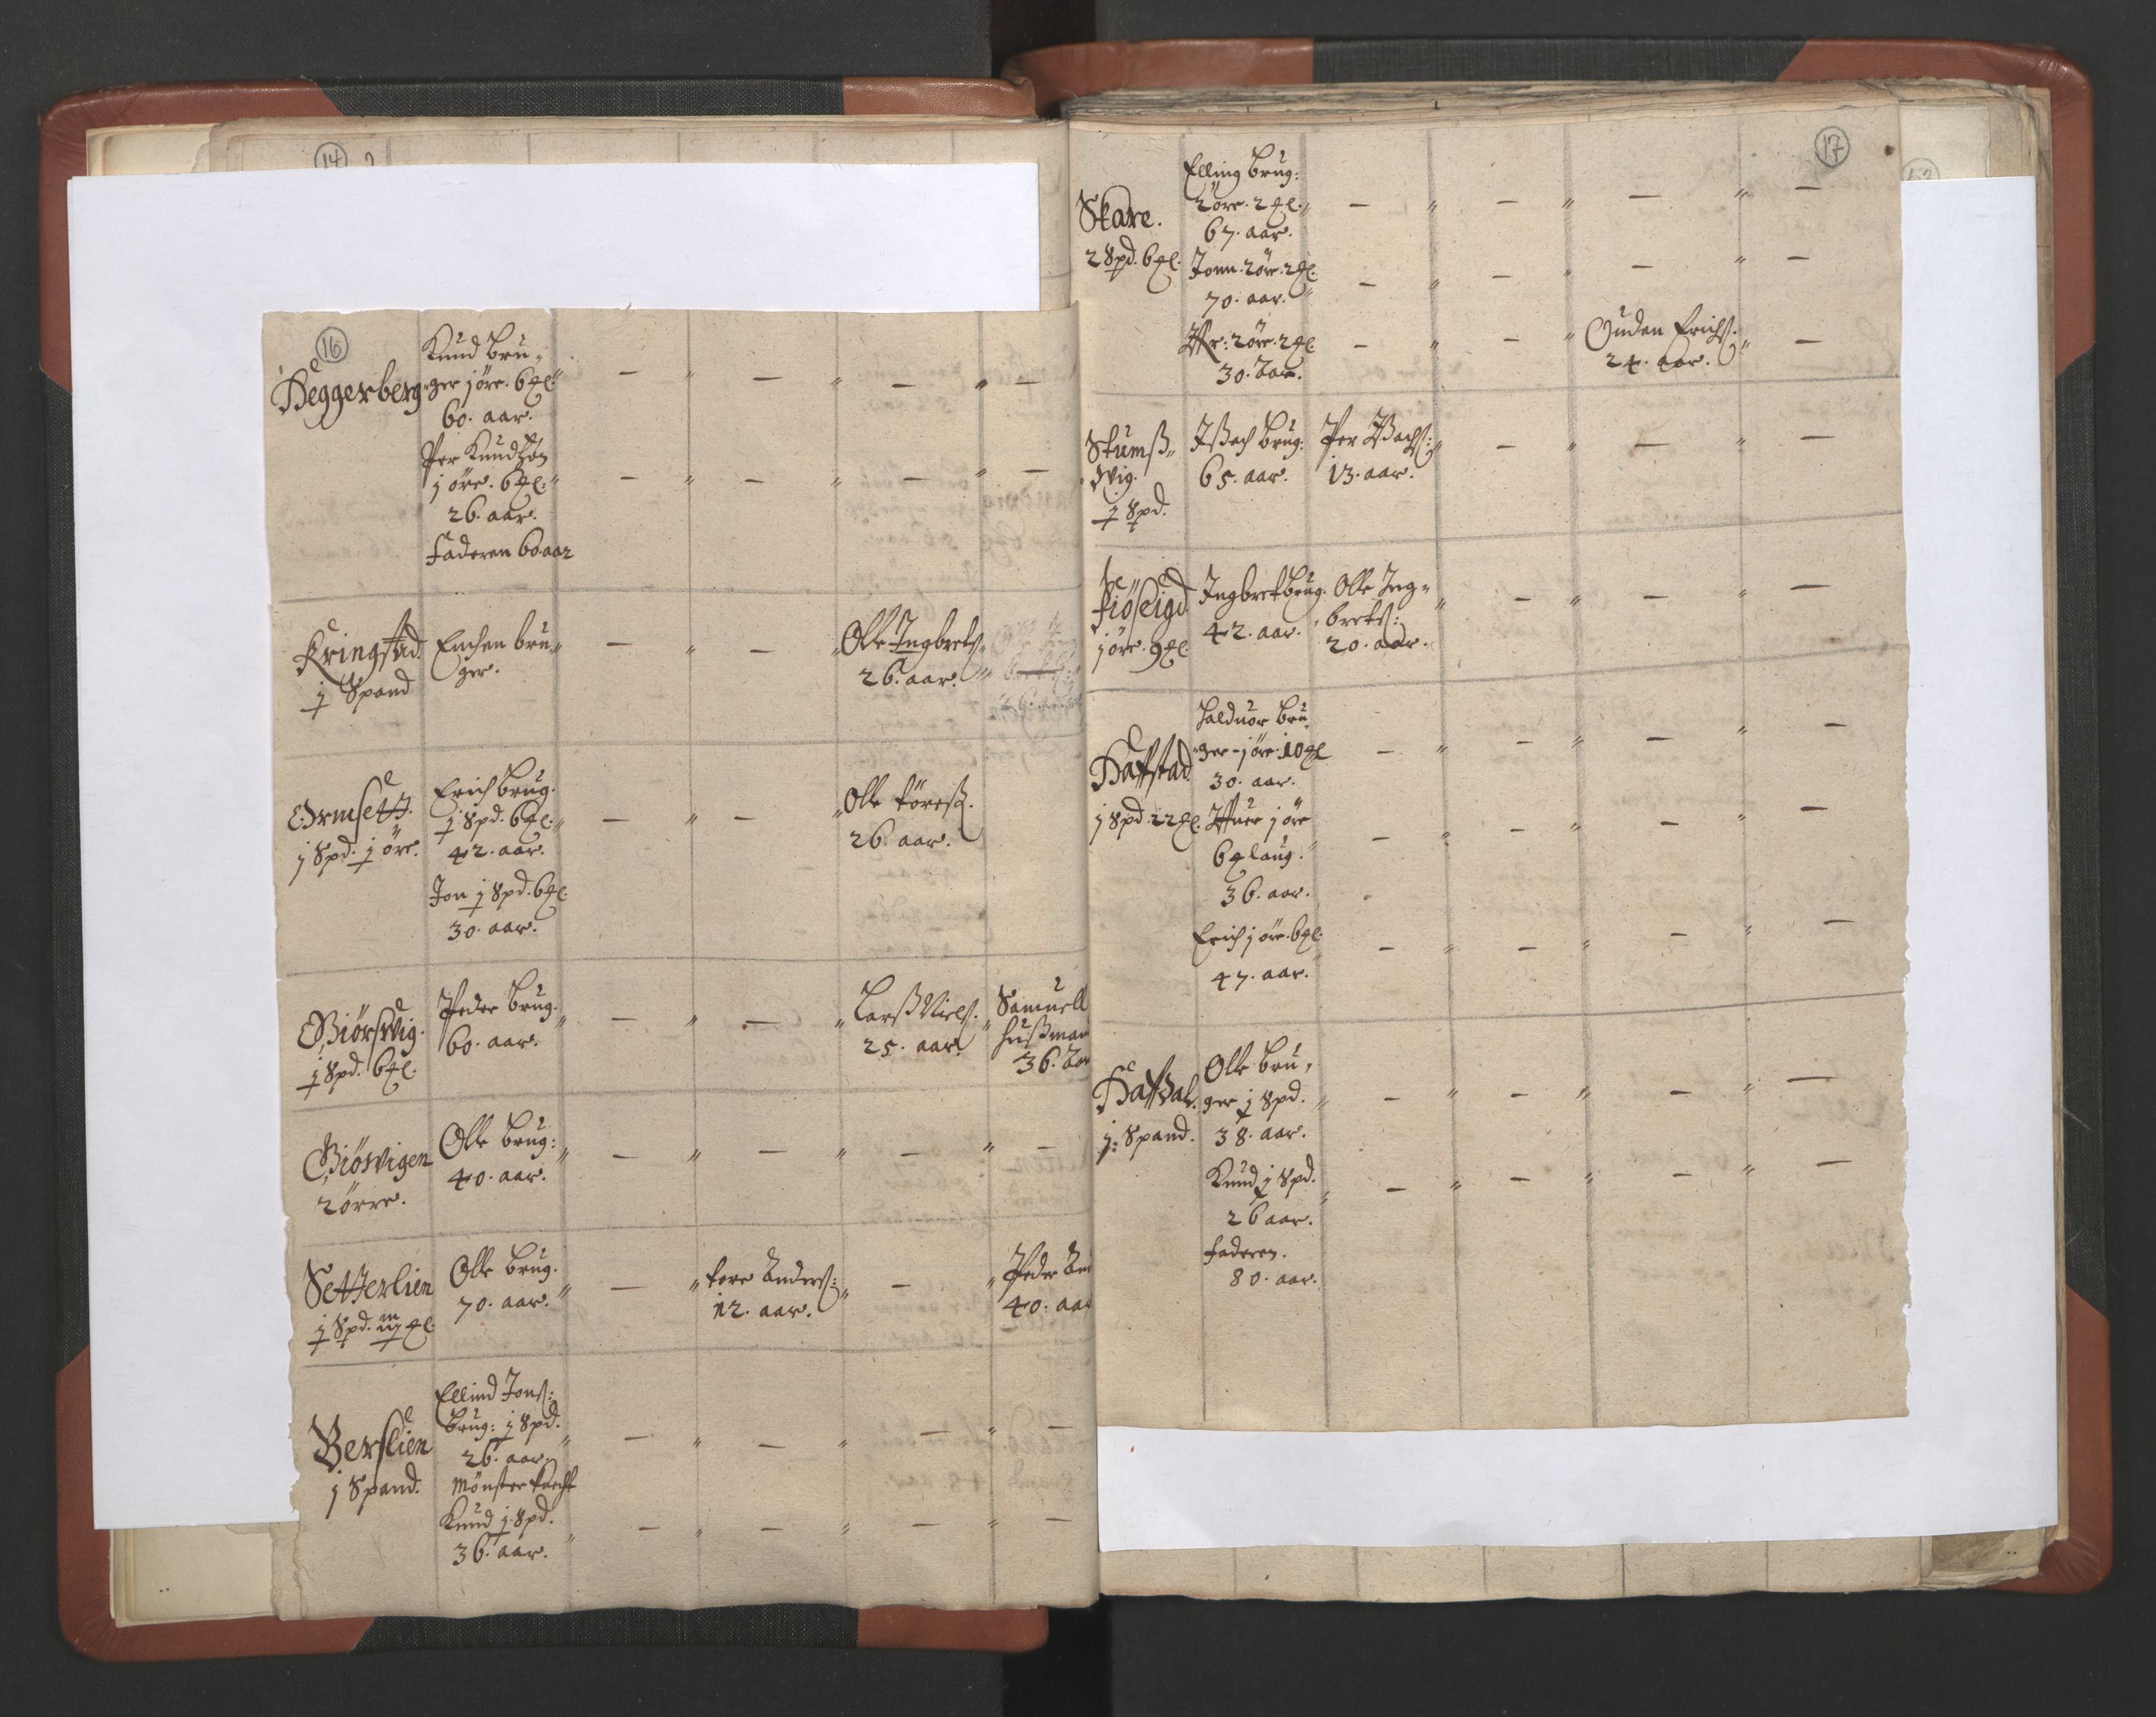 14
16
Heggerberg
Knud bru-
ger j öre. 6 ℔l.
60. aar.
Per Knudzøn
j öre. 6 ℔l.
26. aar.
Faderen 60 aar
Kringstad
j Spand
Enchen bru-
ger.
Olle Ingbretz.
26. aar.
Ormsett.
j Spd. j öre.
Erich brug.
j Spd. 6 ℔l.
42. aar.
Jon j Spd. 6 ℔l.
30. aar.
Olle Töresß.
26. aar.
Biörsvig.
j Spd. 6 ℔l.
Peder brug.
60. aar.
Larß Niels.
25. aar.
Samuell
Hußman
36. Aar
Biösvigen
2 örre.
Olle brug:
40. aar.
Setterlien
j Spd.
Olle brug.
70. aar.
Tore Anders:
12. aar.
Peder
40. aar
Berslien
j Spand.
Ellind Jons:
brug: j Spd.
26. aar.
Mönster karll
Knud j Spd.
36. aar.
17
Skare.
2 Spd. 6 ℔l.
Elling brug:
2 öre. 2 ℔l.
67. aar.
Jonn. 2 öre. 2 ℔l.
70. aar.
Iffr: 2 öre. 2 ℔l.
30. Aar.
Ouden Erichs.
24. aar.
Stumß-
vig.
j Spd.
Ißach brug:
65. aar.
Per Ißachs:
13. aar.
Fiöseigd
j öre. 9 ℔l.
Ingbret brug.
42. aar.
Olle Ing-
brets:
20. aar.
Haffstad
j Spd. 22 ℔l.
Halduor bru-
ger - j öre. 10 ℔l
30. aar.
Iffuer j öre
6 ℔laug.
36. aar.
Erich j öre. 6 ℔l.
47. aar.
Haffdal.
j: Spand.
Olle bru-
ger j Spd.
38. aar.
Knud j Spd.
26 aar.
Faderen.
80. aar.